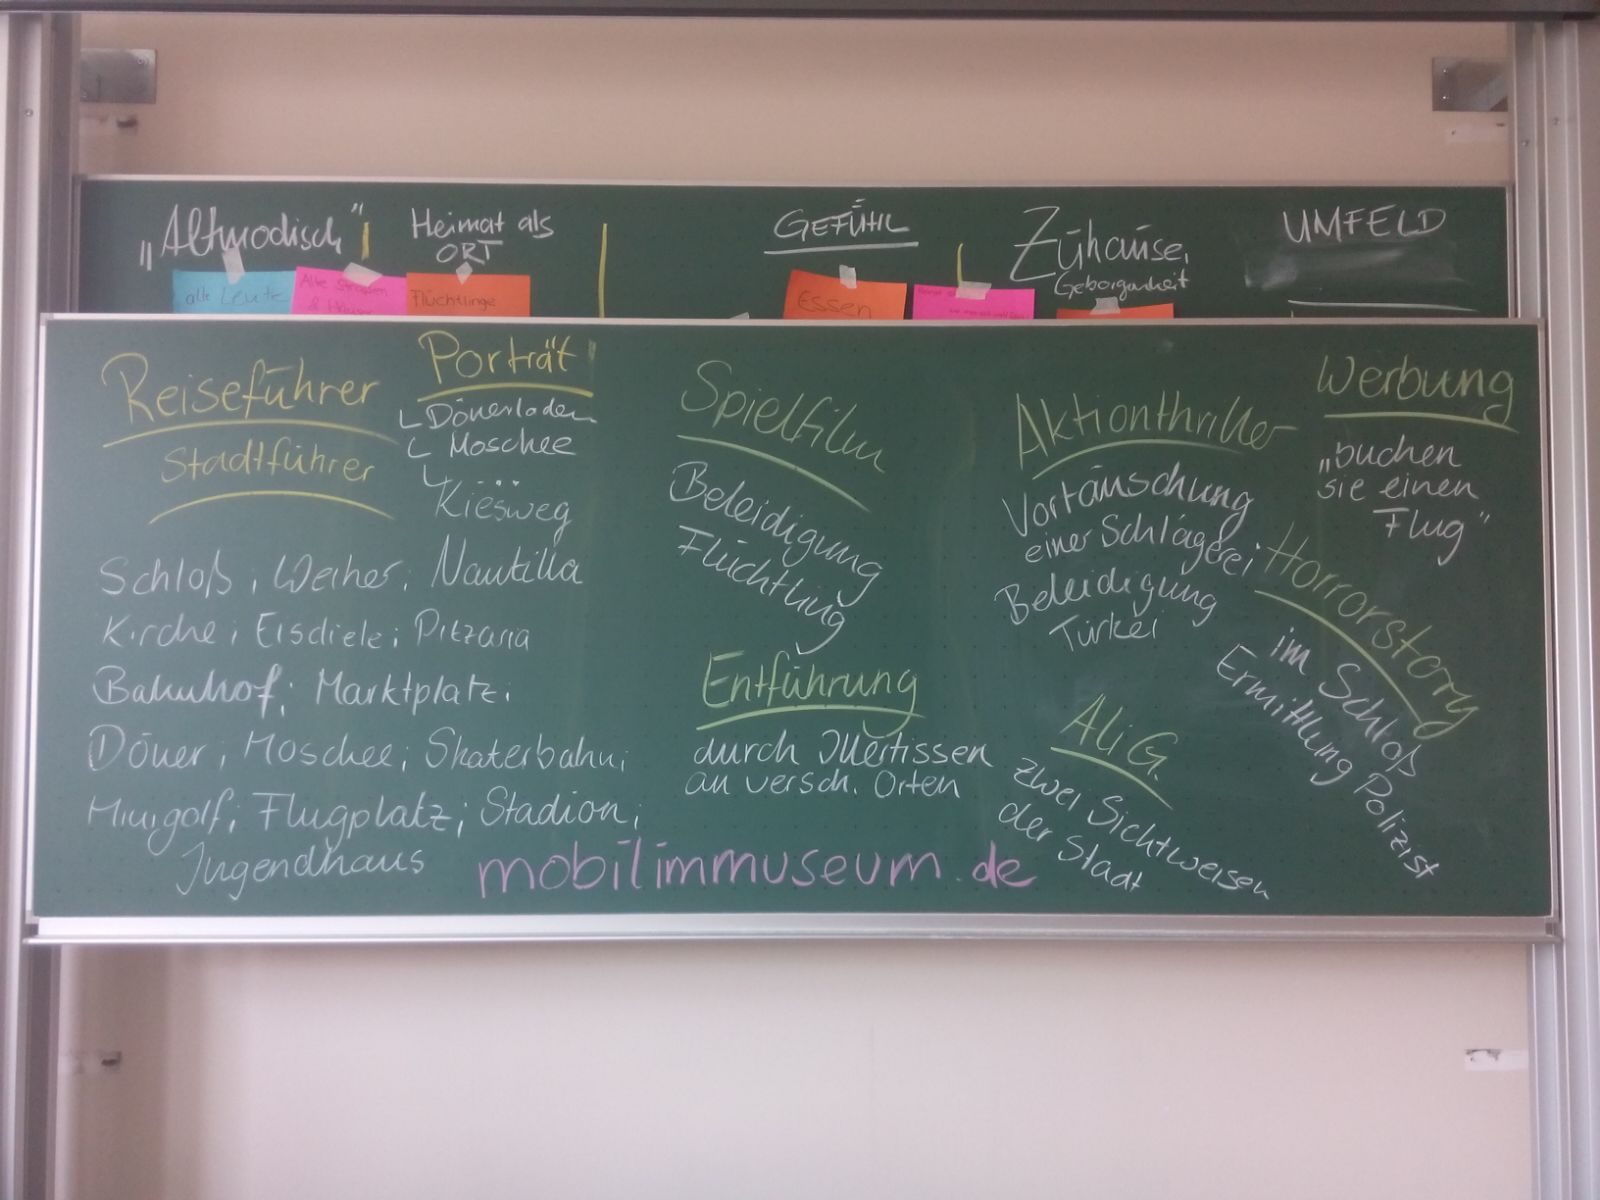 „Altmodisch"
Heimat als
ORT
GEFÜHL
Zuhause,
Geborganheit
UMFELD
alte Leute
Alte Straßen
& Häuser
Flüchtlinge
Essen
Reiseführer
Stadtführer
Porträt
Dönerladen
Moschee
...
Kiesweg
Schloß; Weiher; Nautilla
Kirche; Eisdiele; Pitzaria
Bahnhof; Marktplatz;
Döner; Moschee; Skaterbahn;
Minigolf; Flugplatz; Stadion;
Jugendhaus
Spielfilm
Beleidigung
Flüchtling
Entführung
durch Illertissen
an versch. Orten
Aktionthriller
Vortäuschung
einer Schlägerei
Beleidigung
Türkei
Ali G.
zwei Sichtweisen
der Stadt
Werbung
„buchen
sie einen
Flug"
Horrorstory
im Schloß
Ermittlung Polizist
mobilimmuseum.de